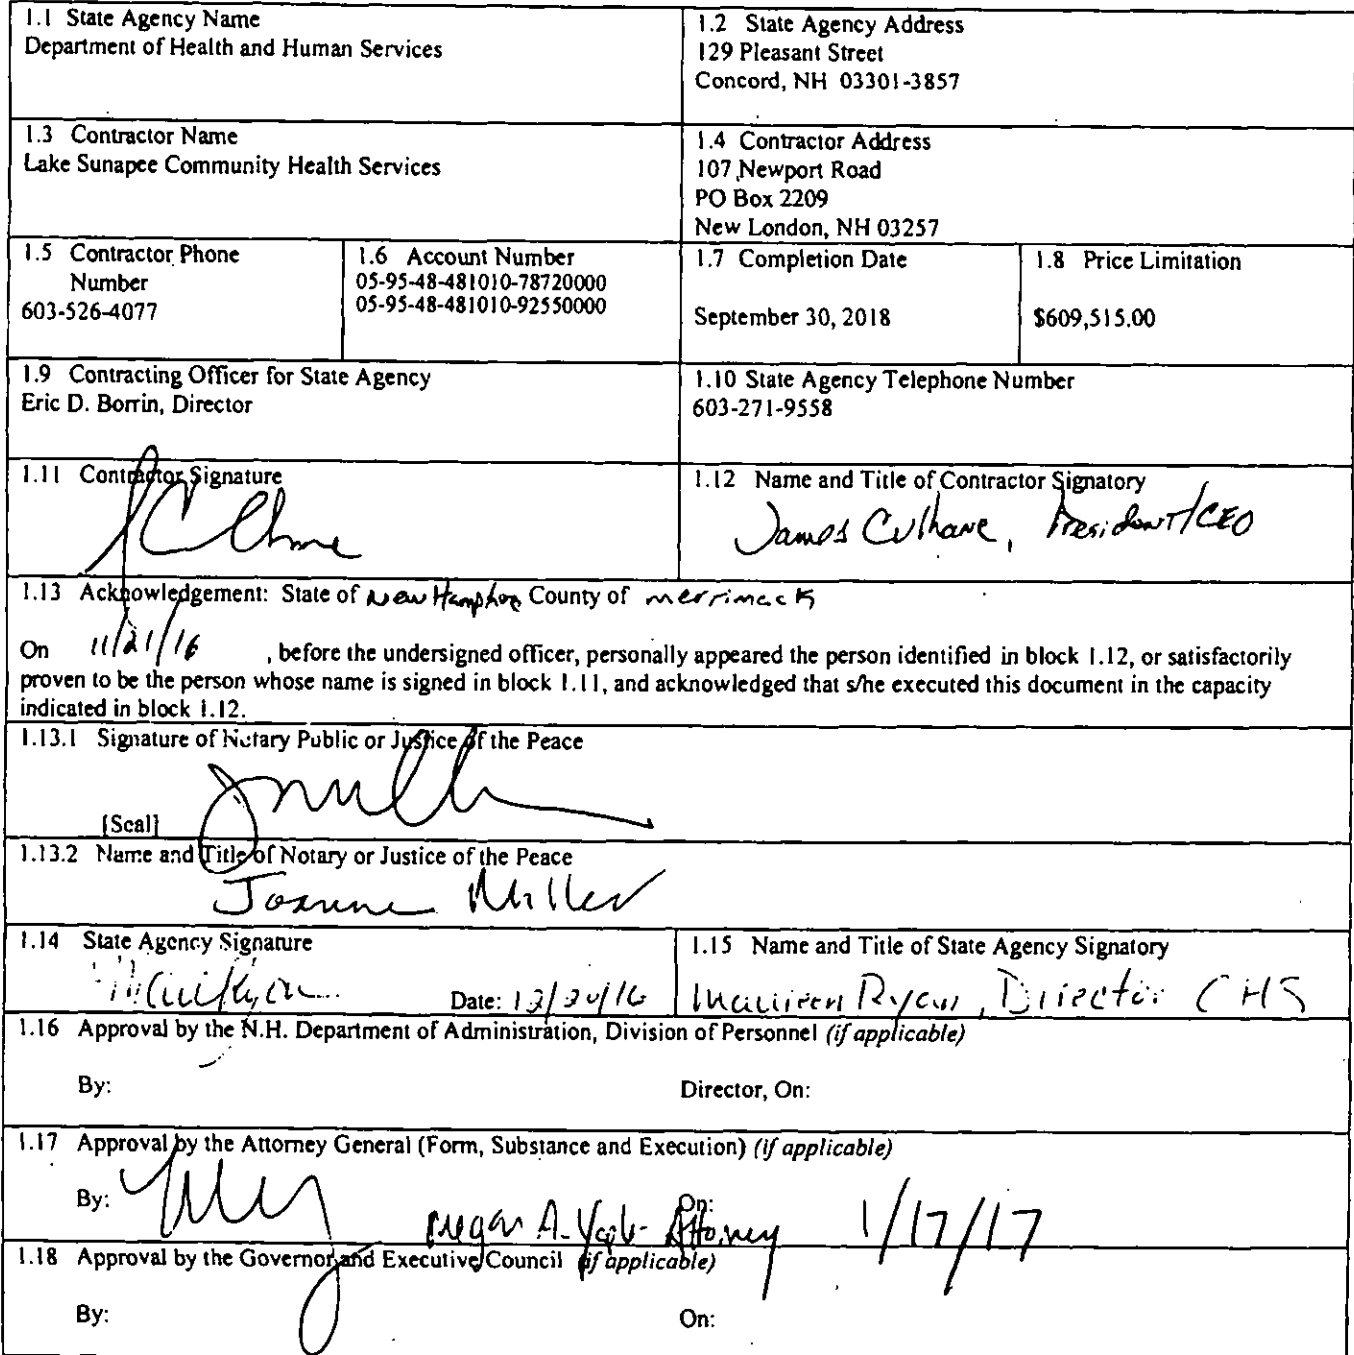 1.1 State Agency Name
Department of Health and Human Services
1.2 State Agency Address
129 Pleasant Street
Concord, NH 03301-3857
1.3 Contractor Name
Lake Sunapee Community Health Services
1.4 Contractor Address
107 Newport Road
PO Box 2209
New London, NH 03257
1.5 Contractor Phone
Number
603-526-4077
1.6 Account Number
05-95-48-481010-78720000
05-95-48-481010-92550000
1.7 Completion Date
September 30, 2018
1.8 Price Limitation
$609,515.00
1.9 Contracting Officer for State Agency
Eric D. Borrin, Director
1.10 State Agency Telephone Number
603-271-9558
1.11 Contractor Signature
1.12 Name and Title of Contractor Signatory
James Culhane, President/CEO
1.13 Acknowledgement: State of New Hampshire County of merrimack
On 11/21/16 , before the undersigned officer, personally appeared the person identified in block 1.12, or satisfactorily
proven to be the person whose name is signed in block 1.11, and acknowledged that s/he executed this document in the capacity
indicated in block 1.12.
1.13.1 Signature of Notary Public or Justice of the Peace
[Seal]
1.13.2 Name and Title of Notary or Justice of the Peace
Joanne Miller
1.14 State Agency Signature
Date: 12/30/16
1.15 Name and Title of State Agency Signatory
Maureen Ryan, Director CHS
1.16 Approval by the N.H. Department of Administration, Division of Personnel (if applicable)
By: Director, On:
1.17 Approval by the Attorney General (Form, Substance and Execution) (if applicable)
By: On:
Megan A. Attorney 1/17/17
1.18 Approval by the Governor and Executive Council (if applicable)
By: On: